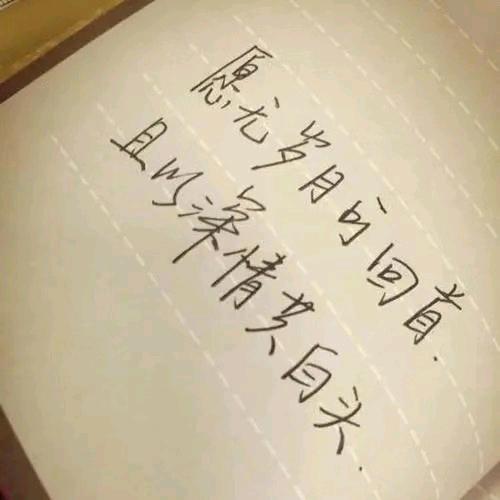 愿无岁月可回首.
且以深情共白头.